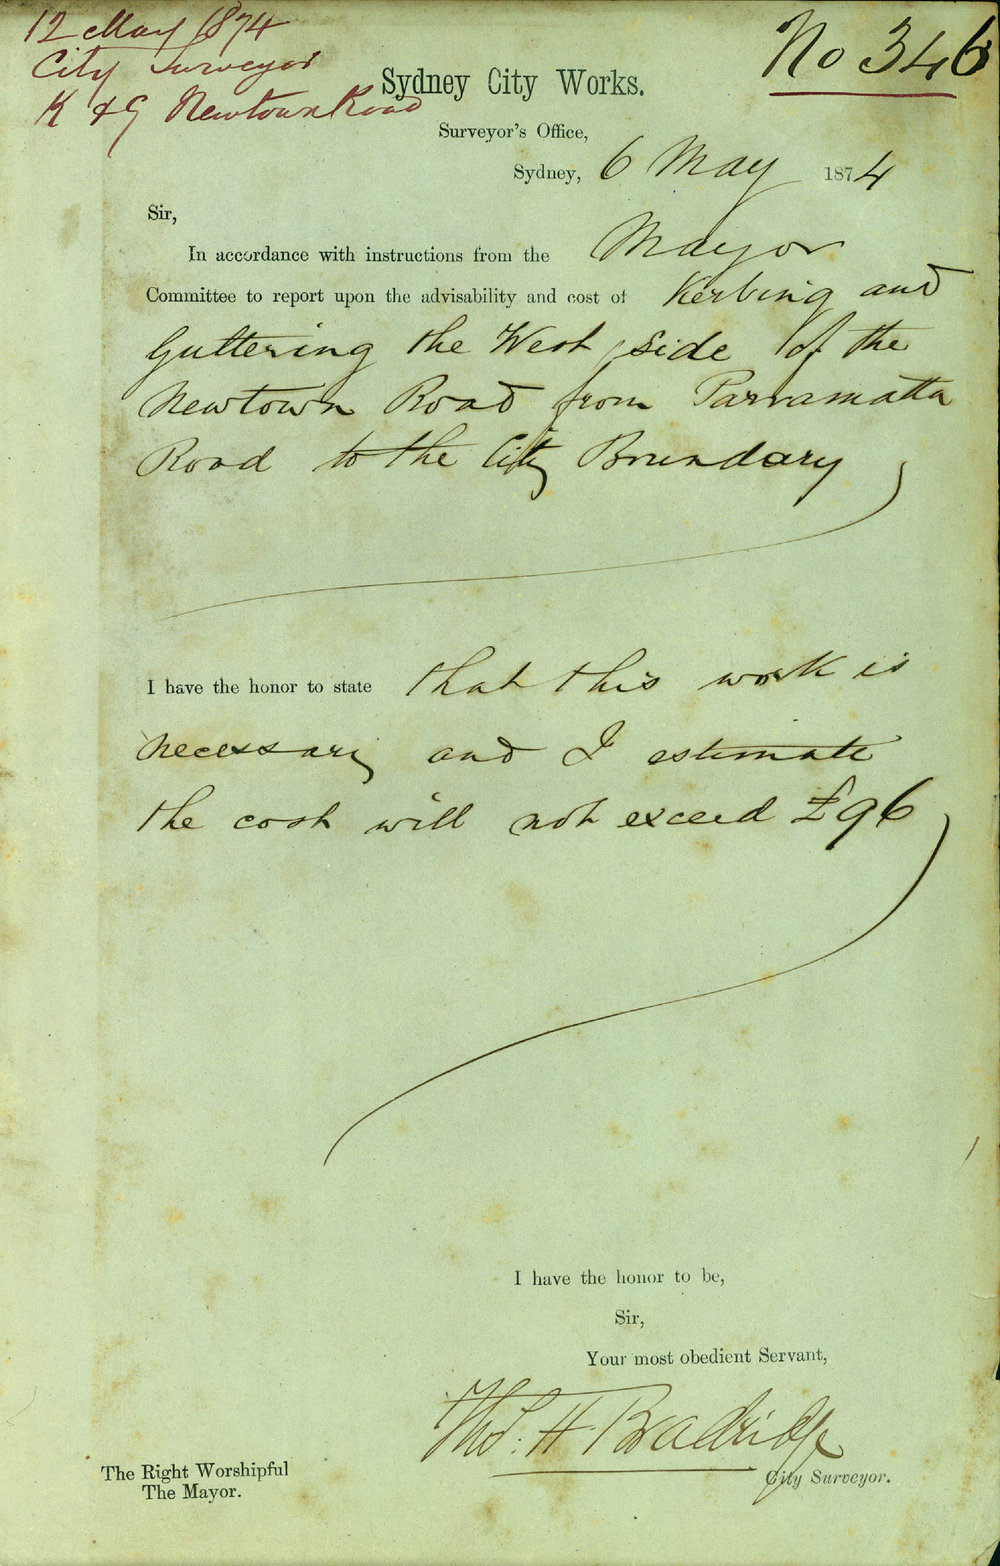 12 May 1874
City Surveyor
K & G Newtown Road
No 346
Sydney City Works.
Surveyor's Office,
Sydney, 6 May 1874
Sir,
In accordance with instructions from the Mayor
Committee to report upon the advisability and cost of Kerbing and
Guttering the West side of the
Newtown Road from Parramatta
Road to the City Boundary
I have the honor to state that this work is
necessary and I estimate
the cost will not exceed £96
I have the honor to be,
Sir,
Your most obedient Servant,
Thos. H. Bradridge
City Surveyor.
The Right Worshipful
The Mayor.